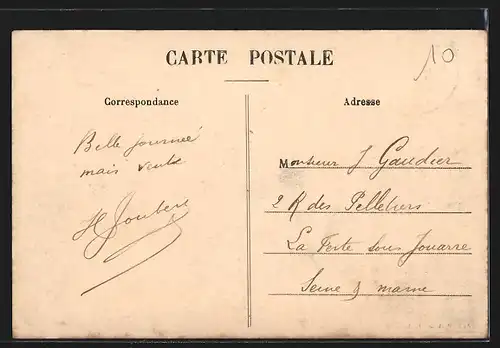 CARTE POSTALE
10
Correspondance
Belle journée
mais
H Joubert
Adresse
Monsieur J Gaudier
2 R des Pelletiers
La Ferte sous Jouarre
Seine & marne